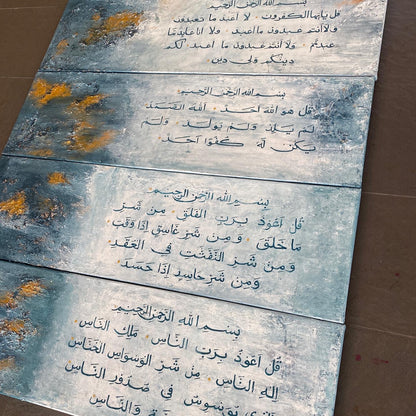 بسم الله الرحمن الرحيم
قل يايها الكفرون لا اعبد ما تعبدون
ولا انتم عبدون ما اعبد ولا انا عابد ما
عبدتم ولا انتم عبدون ما اعبد لكم
دينكم ولي دين
بسم الله الرحمن الرحيم
قل هو الله احد الله الصمد
لم يلد ولم يولد ولم
يكن له كفوا احد
بسم الله الرحمن الرحيم
قُل اَعُوذُ بِرَبِّ الفَلَقِ مِن شَرِّ
مَا خَلَقَ وَمِن شَرِّ غَاسِقٍ اِذَا وَقَبَ
وَمِن شَرِّ النَّفّٰثٰتِ فِي العُقَدِ
وَمِن شَرِّ حَاسِدٍ اِذَا حَسَدَ
بسم الله الرحمن الرحيم
قُل اَعُوذُ بِرَبِّ النَّاسِ مَلِكِ النَّاسِ
اِلٰهِ النَّاسِ مِن شَرِّ الوَسوَاسِ الخَنَّاسِ
الَّذِي يُوَسوِسُ فِي صُدُورِ النَّاسِ
وَالنَّاسِ